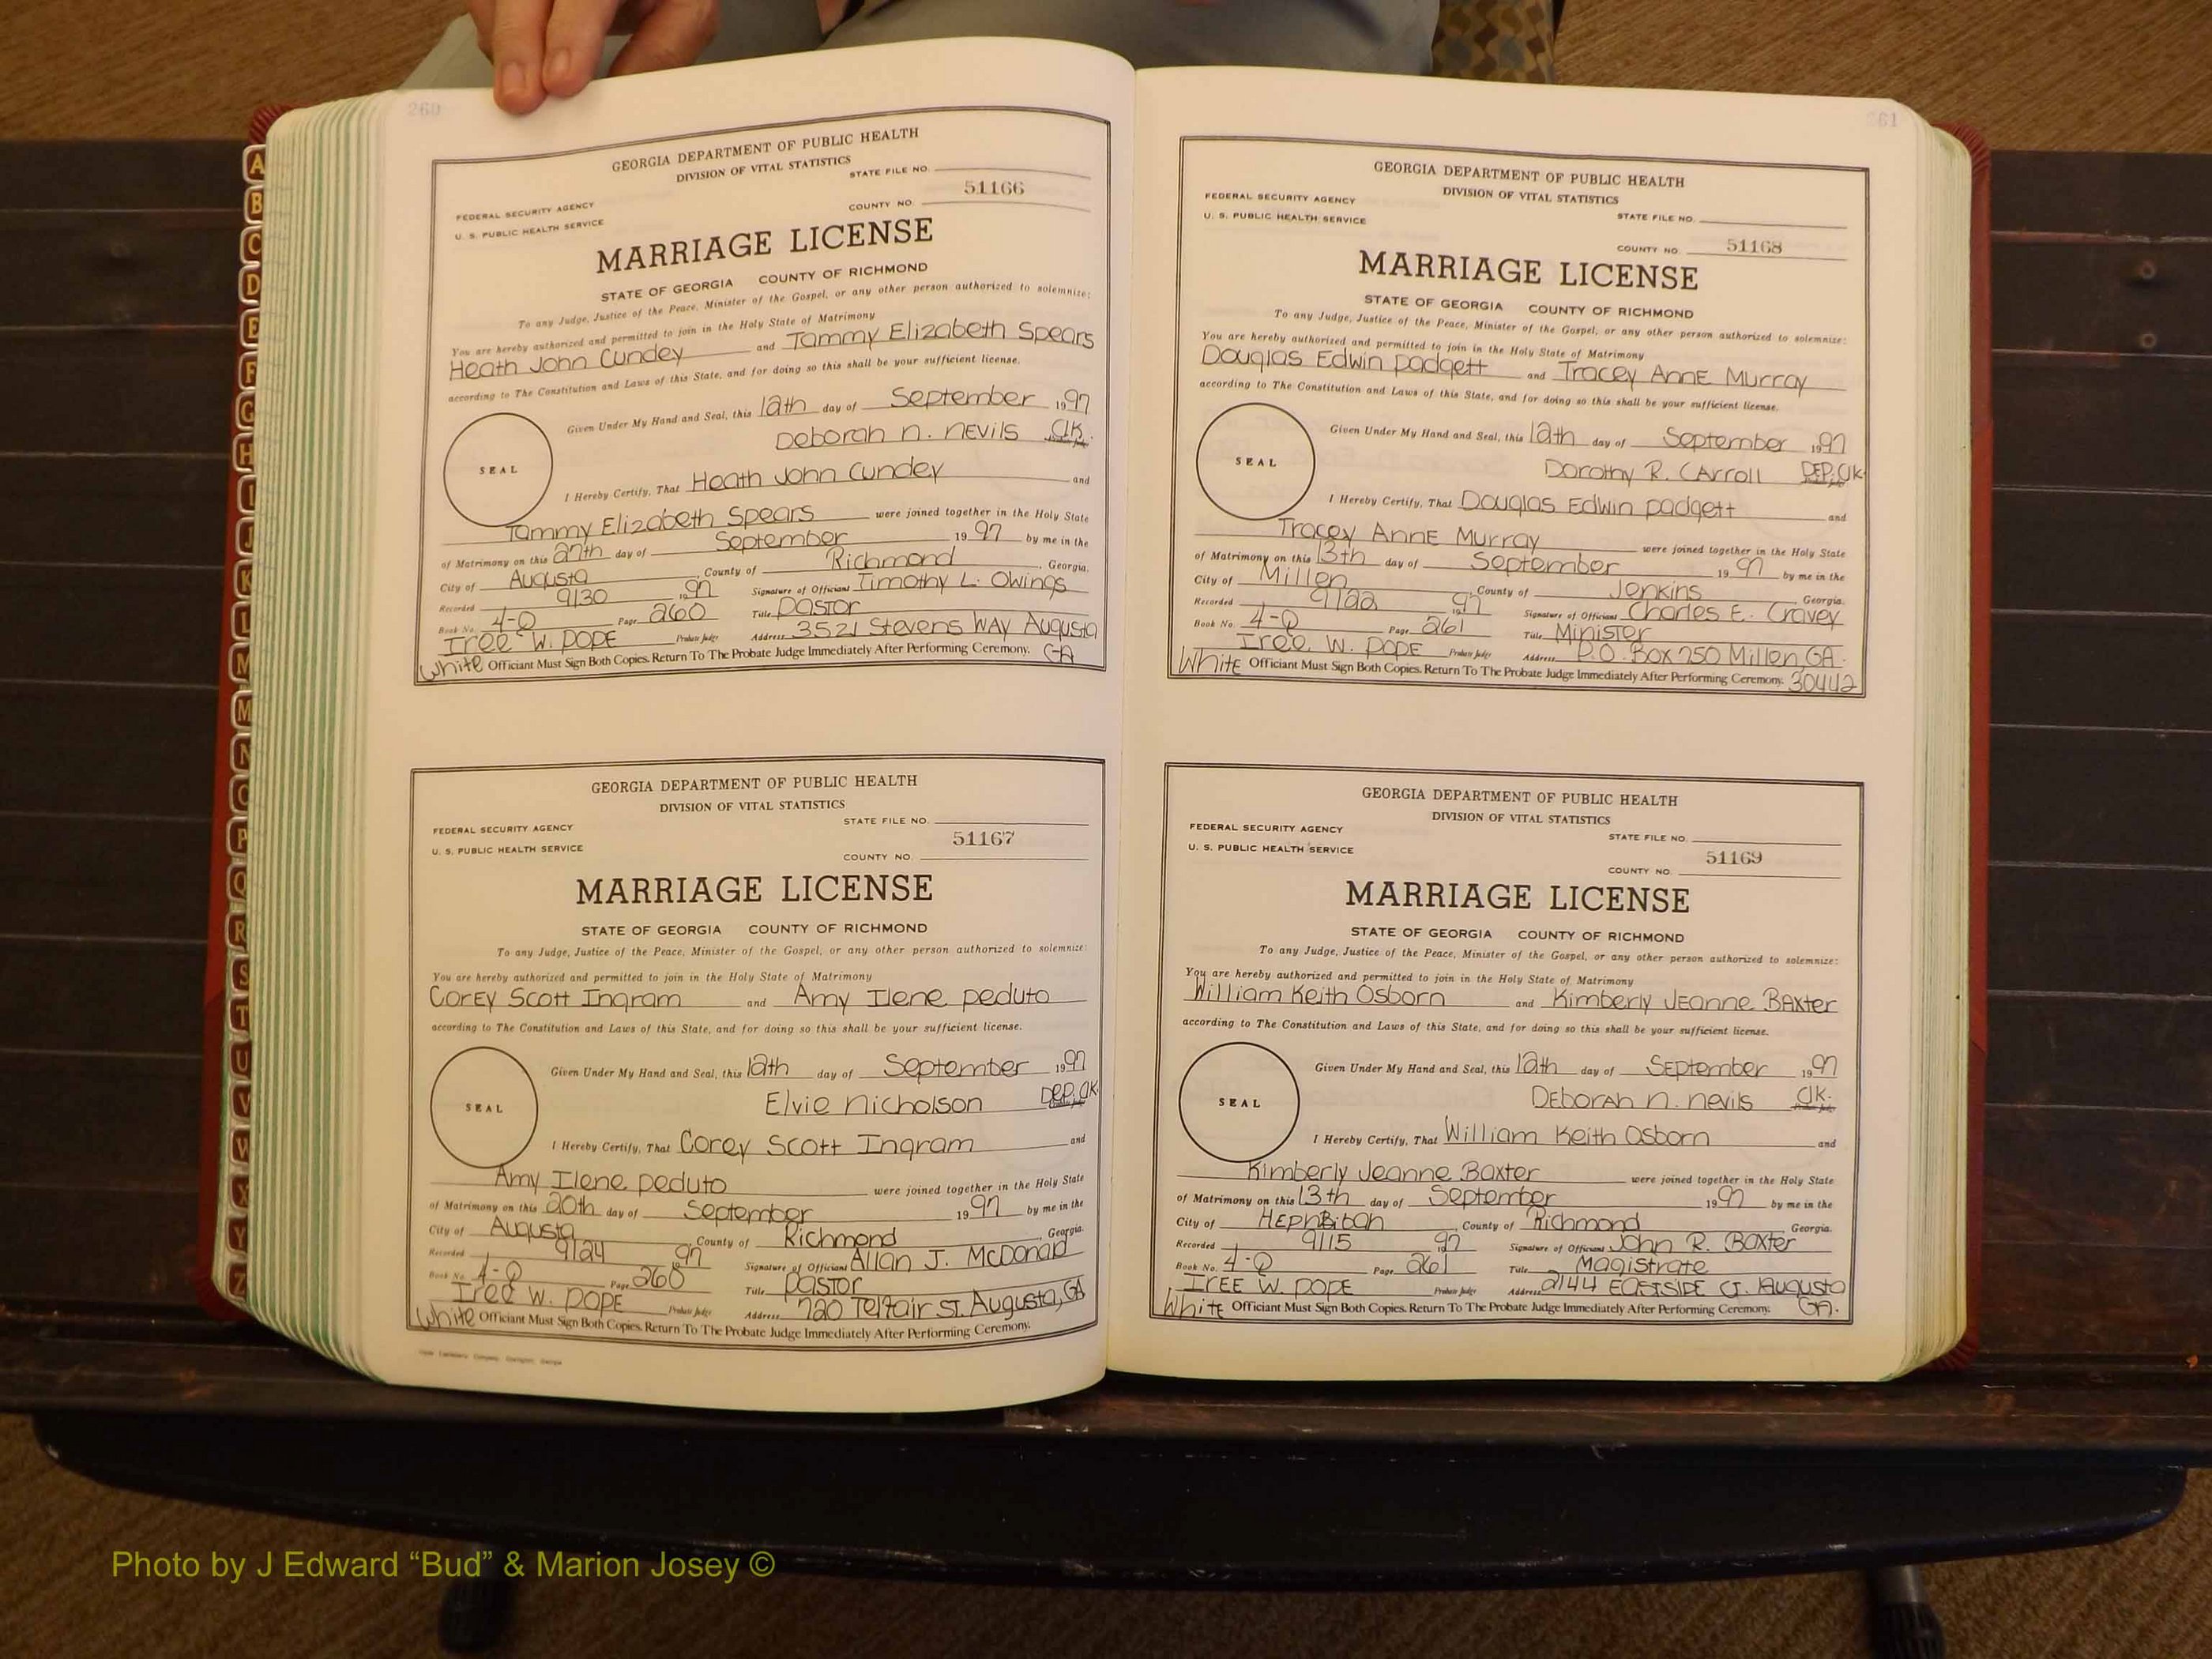 260
GEORGIA DEPARTMENT OF PUBLIC HEALTH
DIVISION OF VITAL STATISTICS
STATE FILE NO.
51166
FEDERAL SECURITY AGENCY
COUNTY NO.
U. S. PUBLIC HEALTH SERVICE
MARRIAGE LICENSE
STATE OF GEORGIA COUNTY OF RICHMOND
To any Judge, Justice of the Peace, Minister of the Gospel, or any other person authorized to solemnize:
You are hereby authorized and permitted to join in the Holy State of Matrimony
Heath John Cundey and Tammy Elizabeth Spears
according to The Constitution and Laws of this State, and for doing so this shall be your sufficient license.
Given Under My Hand and Seal, this 12th day of September 1997
Deborah N. Nevils Clk.
SEAL
I Hereby Certify, That Heath John Cundey and
Tammy Elizabeth Spears were joined together in the Holy State
of Matrimony on this 27th day of September 1997 by me in the
City of Augusta, County of Richmond, Georgia.
Recorded 9/30 1997 Signature of Officiant Timothy L. Owings
Book No. 4-Q Page 260 Title Pastor
Iree W. Pope Probate Judge Address 3521 Stevens Way Augusta
White Officiant Must Sign Both Copies. Return To The Probate Judge Immediately After Performing Ceremony. GA
GEORGIA DEPARTMENT OF PUBLIC HEALTH
DIVISION OF VITAL STATISTICS
STATE FILE NO.
FEDERAL SECURITY AGENCY
51167
U. S. PUBLIC HEALTH SERVICE
COUNTY NO.
MARRIAGE LICENSE
STATE OF GEORGIA COUNTY OF RICHMOND
To any Judge, Justice of the Peace, Minister of the Gospel, or any other person authorized to solemnize:
You are hereby authorized and permitted to join in the Holy State of Matrimony
Corey Scott Ingram and Amy Ilene Peduto
according to The Constitution and Laws of this State, and for doing so this shall be your sufficient license.
Given Under My Hand and Seal, this 12th day of September 1997
Elvie Nicholson Dep. Clk.
SEAL
I Hereby Certify, That Corey Scott Ingram and
Amy Ilene Peduto were joined together in the Holy State
of Matrimony on this 20th day of September 1997 by me in the
City of Augusta, County of Richmond, Georgia.
Recorded 9/24 1997 Signature of Officiant Allan J. McDonald
Book No. 4-Q Page 260 Title Pastor
Iree W. Pope Probate Judge Address 720 Telfair St. Augusta, GA
White Officiant Must Sign Both Copies. Return To The Probate Judge Immediately After Performing Ceremony.
261
GEORGIA DEPARTMENT OF PUBLIC HEALTH
DIVISION OF VITAL STATISTICS
FEDERAL SECURITY AGENCY
STATE FILE NO.
U. S. PUBLIC HEALTH SERVICE
COUNTY NO. 51168
MARRIAGE LICENSE
STATE OF GEORGIA COUNTY OF RICHMOND
To any Judge, Justice of the Peace, Minister of the Gospel, or any other person authorized to solemnize:
You are hereby authorized and permitted to join in the Holy State of Matrimony
Douglas Edwin Padgett and Tracey Anne Murray
according to The Constitution and Laws of this State, and for doing so this shall be your sufficient license.
Given Under My Hand and Seal, this 12th day of September 1997
Dorothy R. Carroll Dep. Clk.
SEAL
I Hereby Certify, That Douglas Edwin Padgett and
Tracey Anne Murray were joined together in the Holy State
of Matrimony on this 13th day of September 1997 by me in the
City of Millen, County of Jenkins Georgia.
Recorded 9/22 1997 Signature of Officiant Charles E. Cravey
Book No. 4-Q Page 261 Title Minister
Iree. W. Pope Probate Judge Address P.O. Box 750 Millen, GA.
White Officiant Must Sign Both Copies. Return To The Probate Judge Immediately After Performing Ceremony. 30442
GEORGIA DEPARTMENT OF PUBLIC HEALTH
DIVISION OF VITAL STATISTICS
FEDERAL SECURITY AGENCY
STATE FILE NO.
U. S. PUBLIC HEALTH SERVICE
51169
COUNTY NO.
MARRIAGE LICENSE
STATE OF GEORGIA COUNTY OF RICHMOND
To any Judge, Justice of the Peace, Minister of the Gospel, or any other person authorized to solemnize:
You are hereby authorized and permitted to join in the Holy State of Matrimony
William Keith Osborn and Kimberly Jeanne Baxter
according to The Constitution and Laws of this State, and for doing so this shall be your sufficient license.
Given Under My Hand and Seal, this 12th day of September 1997
Deborah N. Nevils Clk.
SEAL
I Hereby Certify, That William Keith Osborn and
Kimberly Jeanne Baxter were joined together in the Holy State
of Matrimony on this 13th day of September 1997 by me in the
City of Hephzibah, County of Richmond Georgia.
Recorded 9/15 1997 Signature of Officiant John R. Baxter
Book No. 4-Q Page 261 Title Magistrate
Iree W. Pope Probate Judge Address 2144 Eastside Ct. Augusta
White Officiant Must Sign Both Copies. Return To The Probate Judge Immediately After Performing Ceremony. GA.
A
B
C
D
E
F
G
H
I
J
K
L
M
M
N
O
P
Q
R
S
T
U
V
W
X
Y
Z
Photo by J Edward “Bud” & Marion Josey ©